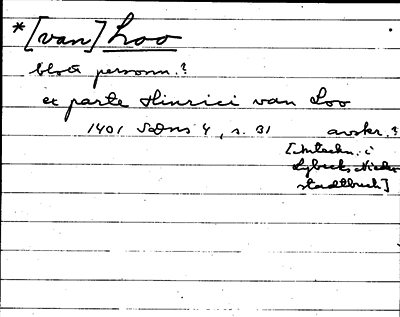 *[van] Loo
blott personn.?
ex parte Hinrici van Loo
1401 SDns 4, s. 31 avskr.?
[Inteckn. i
Lybecks Nieder
stadtbuch]